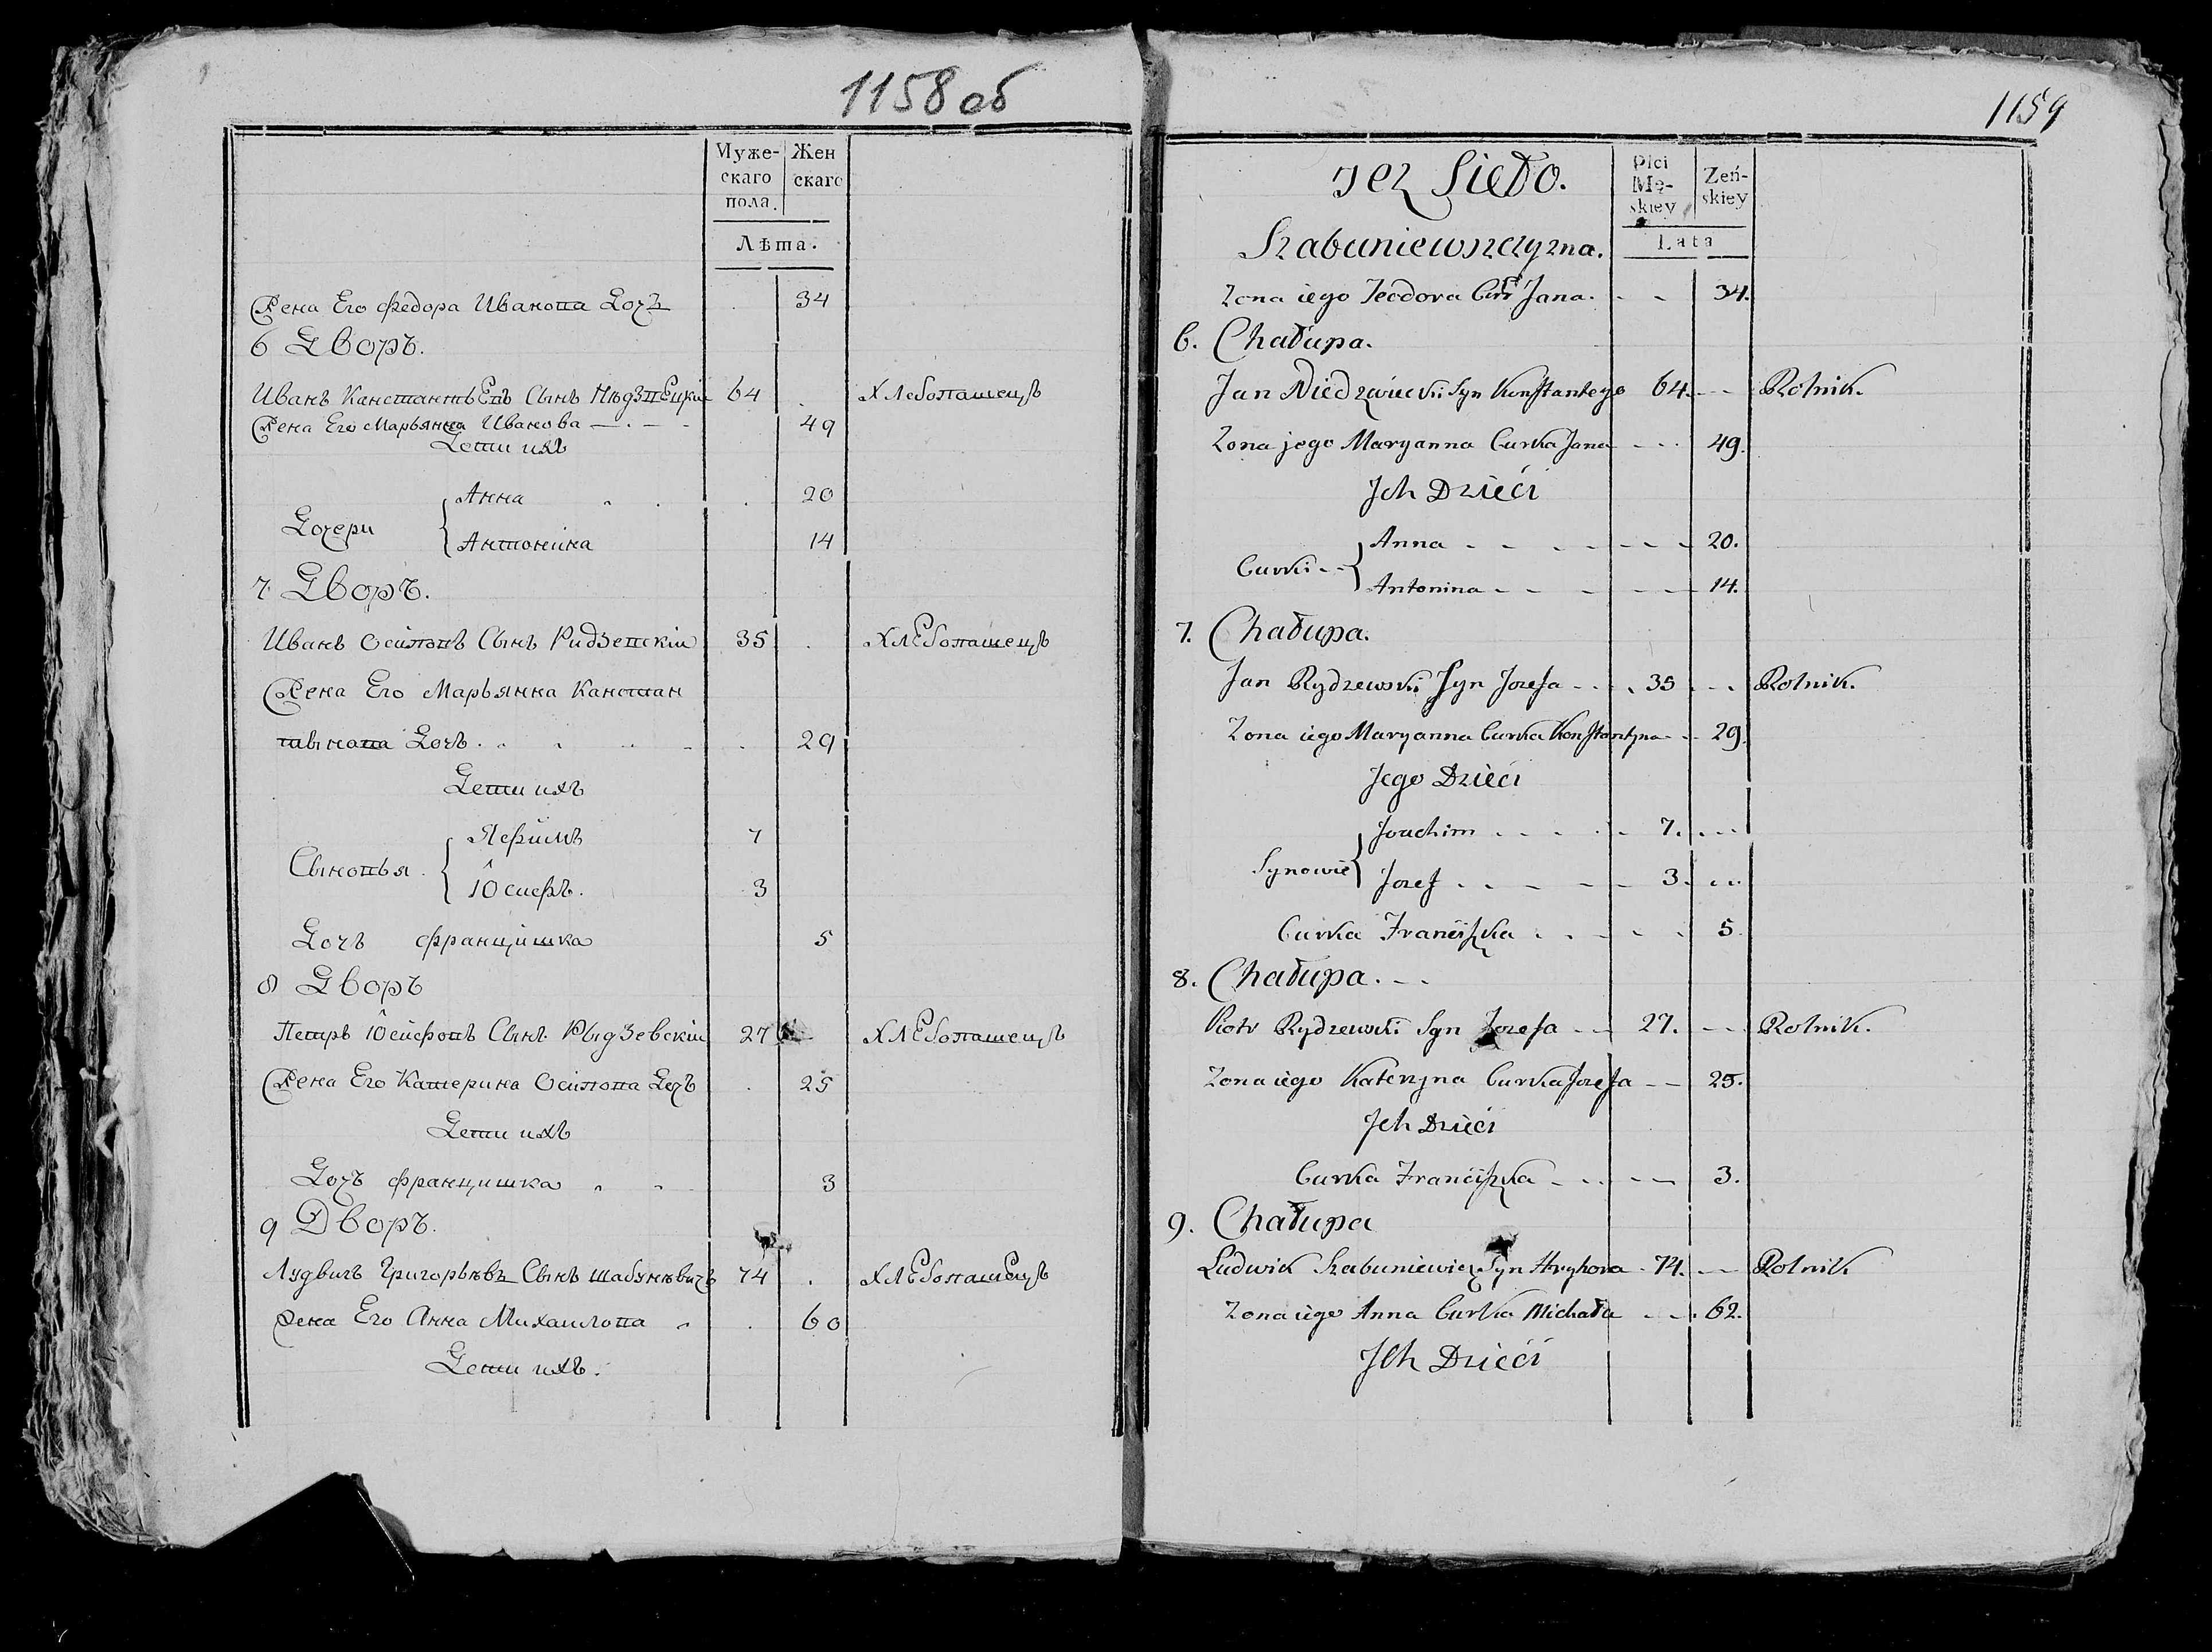 1158 об
Муже-
скаго
пола.
Жен
скаго
Лѣта.
Жена Его Федора Иванова Дочь 34
6 Дворъ.
Иванъ Канстантъевъ Сынъ Нѣдзвецкiи 64 Хлебопашецъ
Жена Его Марьянна Иванова 49
Дети ихъ
Анна 20
Дочери
Антонина 14
7 Дворъ.
Иванъ Осиповъ Сынъ Ридзевскiи 35 Хлебопашецъ
Жена Его Марьянна Канстан
тынова Дочь 29
Дети ихъ
Яефимъ 7
Сыновья
Юсиефъ. 3
Дочь францишка 5
8 Дворъ
Петръ Юсифовъ Сынъ Рыдзевскiи 27 Хлебопашецъ
Жена Его Катерина Осипова Дочь 25
Дети ихъ
Дочь францишка 3
9 Дворъ.
Лудвигъ Григорьевъ Сынъ шабуневичъ 74 Хлебопашецъ
Жена Его Анна Михаилова 60
Дети ихъ.
1159
Jez Sieło.
Płci
Mę-
skiey
Żeń-
skiey
Lata
Szabuniewszczyzna.
Zona iego Teodora Jana. 34.
6. Chałupa.
Jan Niedzwiecki Syn Konstantego 64. Rolnik.
Zona jego Maryanna Curka Jana 49.
Jch Dzieći
Anna 20.
Curki
Antonina 14.
7. Chałupa.
Jan Rydzewski Syn Jozefa 35 Rolnik.
Zona iego Maryanna Curka Konstantyna 29.
Jego Dzieći
Joachim 7.
Synowie
Jozef 3.
Curka Franciszka 5.
8. Chałupa.
Piotr Rydzewski Syn Jozefa 27. Rolnik.
Zona iego Katerzyna Curka Jozefa 25.
Jch Dzieći
Curka Franciszka 3.
9. Chałupa
Ludwik Szabuniewicz Syn Hryhora 74. Rolnik
Zona iego Anna Curka Michała 62.
Jch Dzieći